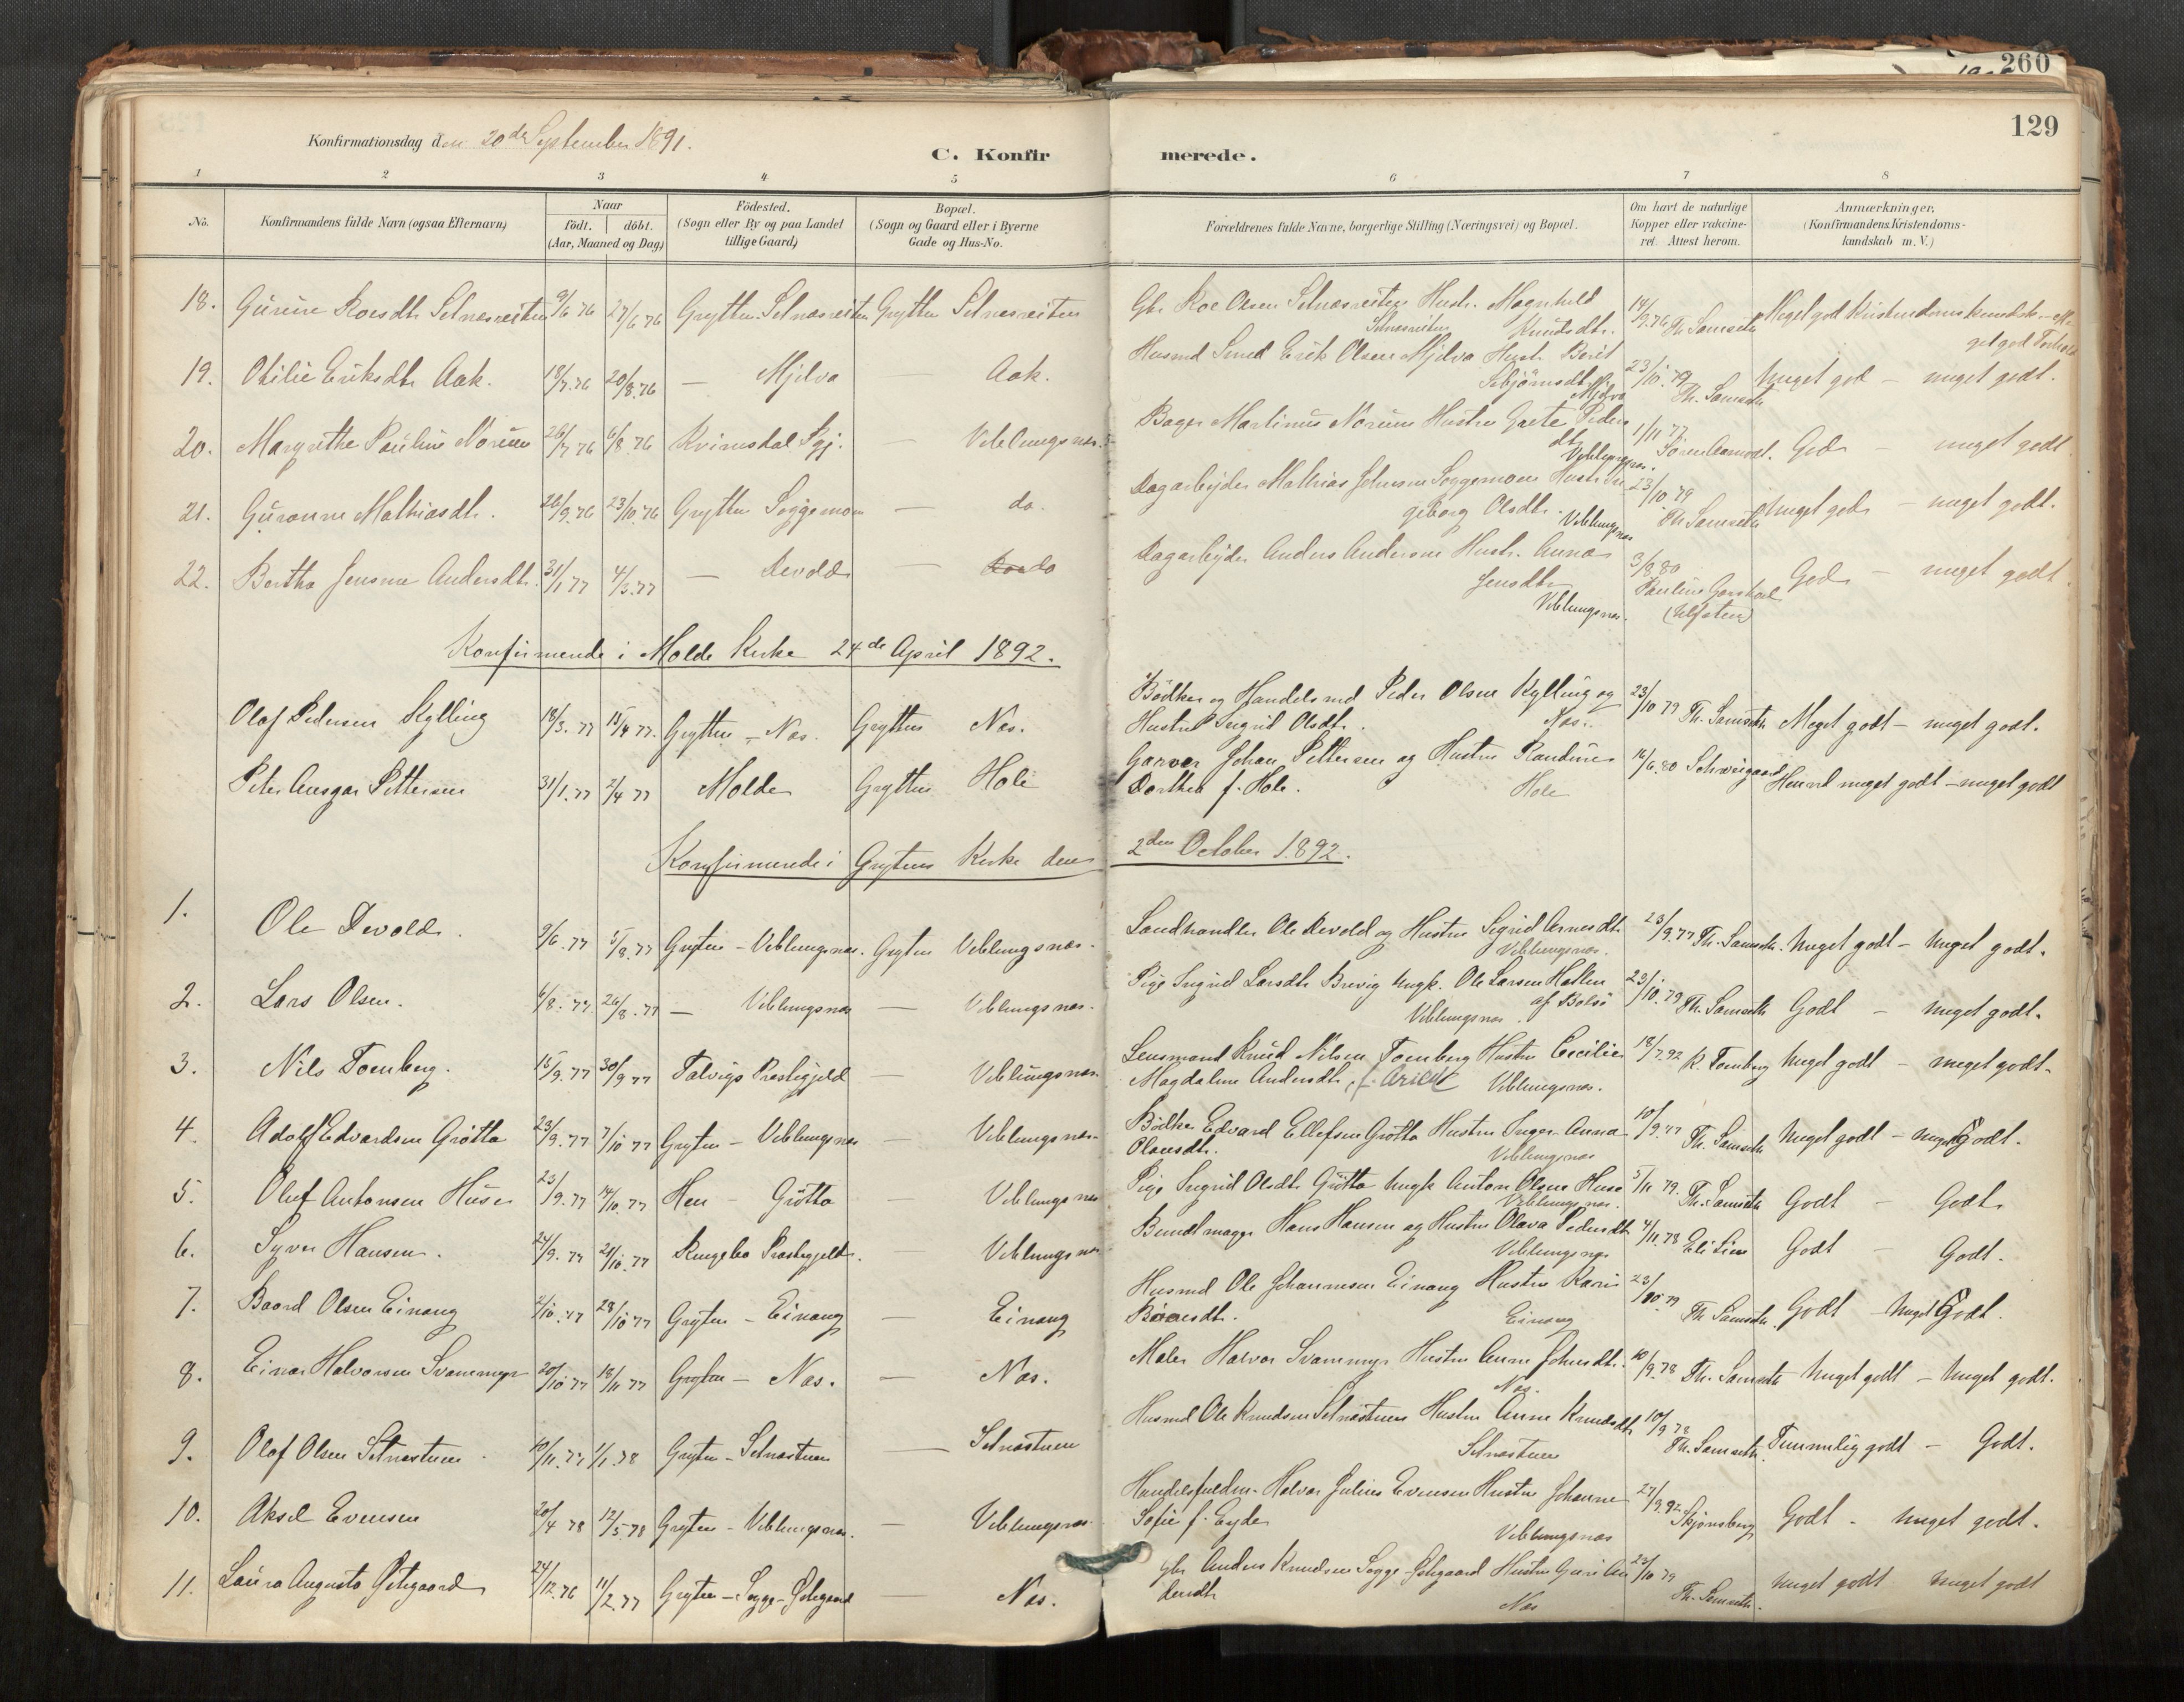 260
129
Konfirmationsdag den 20de September 1891.
C. Konfirmerede.
1 2 3 4 5 6 7 8
No. Konfirmandens fulde Navn (ogsaa Efternavn) Naar födt. döbt. (Aar, Maaned og Dag) Födested. (Sogn eller By og paa Landet tillige Gaard) Bopæl. (Sogn og Gaard eller i Byerne Gade og Hus-No. Forældrenes fulde Navne, borgerlige Stilling (Næringsvei) og Bopæl. Om havt de naturlige Kopper eller vakcineret. Attest herom. Anmærkninger. (Konfirmandens Kristendomskundskab m. V.)
18. Gurine Roesdtr. Setnesreiten 9/6 76 27/6 76 Grytten Setnesreiten Grytten Setnesreiten Gbr. Roe Olsen Setnesreiten Hustr. Magnhild
Setnesreiten Knudsdtr. 14/9.76 Th. Samseth Meget god Kristendomskundsk. - Meget god
19. Otilie Eriksdtr. Aak. 18/7.76 20/8.76 — Mjelva — Aak. Husmd Smed Erik Olsen Mjelva Hustr. Berit
Mjelva 23/10.79 Th. Samseth Meget god — meget godt.
20. Margrethe Pauline Nörum 26/7 76 6/8 76 Kvinesdal Pgj. — Veblungsnes. Bager Martinus Nörum Hustru Grete Peders
dtr. Veblungsnes. 1/11 77 God — meget godt
21. Guranne Mathiasdtr. 26/9.76 23/10.76 Grytten Soggemoen — do. Dagarbeider Mathias Johnsen Soggemoen Hustr. In
geborg Olsdtr. Veblungsnes 23/10 79 Th Samseth Meget god — meget godt.
22. Bertha Jensine Andersdtr. 31/1 77 4/3.77 — Devold — do Dagarbeider Anders Andersen Hustr. Anna
Jensdtr. Veblungsnes. 3/8.80 Pauline God — meget godt.
Konfirmerede i Molde Kirke 24de April 1892.
Olaf Pedersen Kylling 18/3.77 15/4 77. Grytten - Nes. Grytten Nes. Bödker og Handelsmd Peder Olsen Kylling og
Hustru Ingrid Olsdtr. Nes. 23/10 79 Th. Samseth Meget godt — meget godt.
Peter Ansgar Pettersen 31/1.77 2/4 77 Molde Grytten Hole Garver Johan Pettersen og Hustru Randine
Dorthea f. Hole. Hole 16/6.80 Schweigaard meget godt — meget godt
Konfirmerede i Gryttens Kirke den 2den October 1892.
1. Ole Devold. 9/6.77 5/8.77 Grytten - Veblungsnes. Grytten Veblungsnes. Landhandler Ole Devold og Hustru Sigrid Arnesdtr.
Veblungsnes. 23/9.77 Th. Samseth. Meget godt — Meget godt.
2. Lars Olsen. 6/8.77 26/8.77 — Veblungsnes — Veblungsnes. Pige Ingrid Larsdtr. Brevig Ungk. Ole Larsen Hatlen
Veblungsnes. af Bolsö 23/10.79 Th. Samseth Godt — meget godt.
3. Nils Tomberg. 15/9.77 30/9 77 Talvigs Præstegjeld — Veblungsnes. Lensmand Knud Nilsen Tomberg Hustru Cecilie
Magdalene Andersdtr. Veblungsnes. 18/7.92 K. Tomberg Meget godt — meget godt.
4. Adolf Edvardsen Grötta 23/9.77 7/10 77 Grytten - Veblungsnes — Veblungsnes. Bödker Edvard Ellefsen Grötta Hustru Inger Anna
Olausdtr. Veblungsnes 10/9.77 Th. Samseth Meget godt — meget Godt.
5. Oluf Antonsen Huse 23/9.77 14/10.77 Hen - Grötta — Veblungsnes Pige Ingrid Olsdtr. Grötta Ungk Anton Olsen Huse
Veblungsnes. 5/11 79. Th. Samseth Godt — Godt.
6. Syver Hansen. 24/9.77 21/10.77 Ringebo Præstegjeld. — Veblungsnes Bundtmager Hans Hansen og Hustru Olava Pedersdtr.
Veblungsnes 4/11.78 Godt — Godt.
7. Baard Olsen Einang 2/10.77 28/10 77 Grytten - Einang — Einang Husmd Ole Johannesen Einang Hustru Kari
Einang 23/10.79 Th Samseth. Godt — Meget Godt.
8. Einar Halvorsen Svammyr 20/10 77 18/11 77 Grytten - Nes. — Nes. Maler Halvor Svammyr Hustru Anne Johnsdtr.
Nes. 10/9.78 Th. Samseth Meget godt — Meget godt.
9. Olaf Olsen Setnestuen 10/11.77 1/1.78 Grytten - Setnestuen — Setnestuen Husmd Ole Knudsen Setnestuen Hustru Anne Knudsdtr.
Setnestuen 10/9 78 Th. Samseth Temmelig godt — Godt.
10. Aksel Evensen 20/4 78 12/5.78 Grytten - Veblungsnes. — Veblungsnes Handelsfuldm. Halvor Julius Evensen Hustru Johanne
Sofie f. Eyde Veblungsnes 27/9.92 Skjönsberg Godt — meget godt.
11. Laura Augusta Östigaard 24/12.76 11/2.77 Grytten - Sogge - Östigaard — Nes. Gbr. Anders Knudsen Sogge - Östigaard Hustru Guri An
dersdtr. Nes 23/10 79 Th. Samseth. Meget godt meget godt